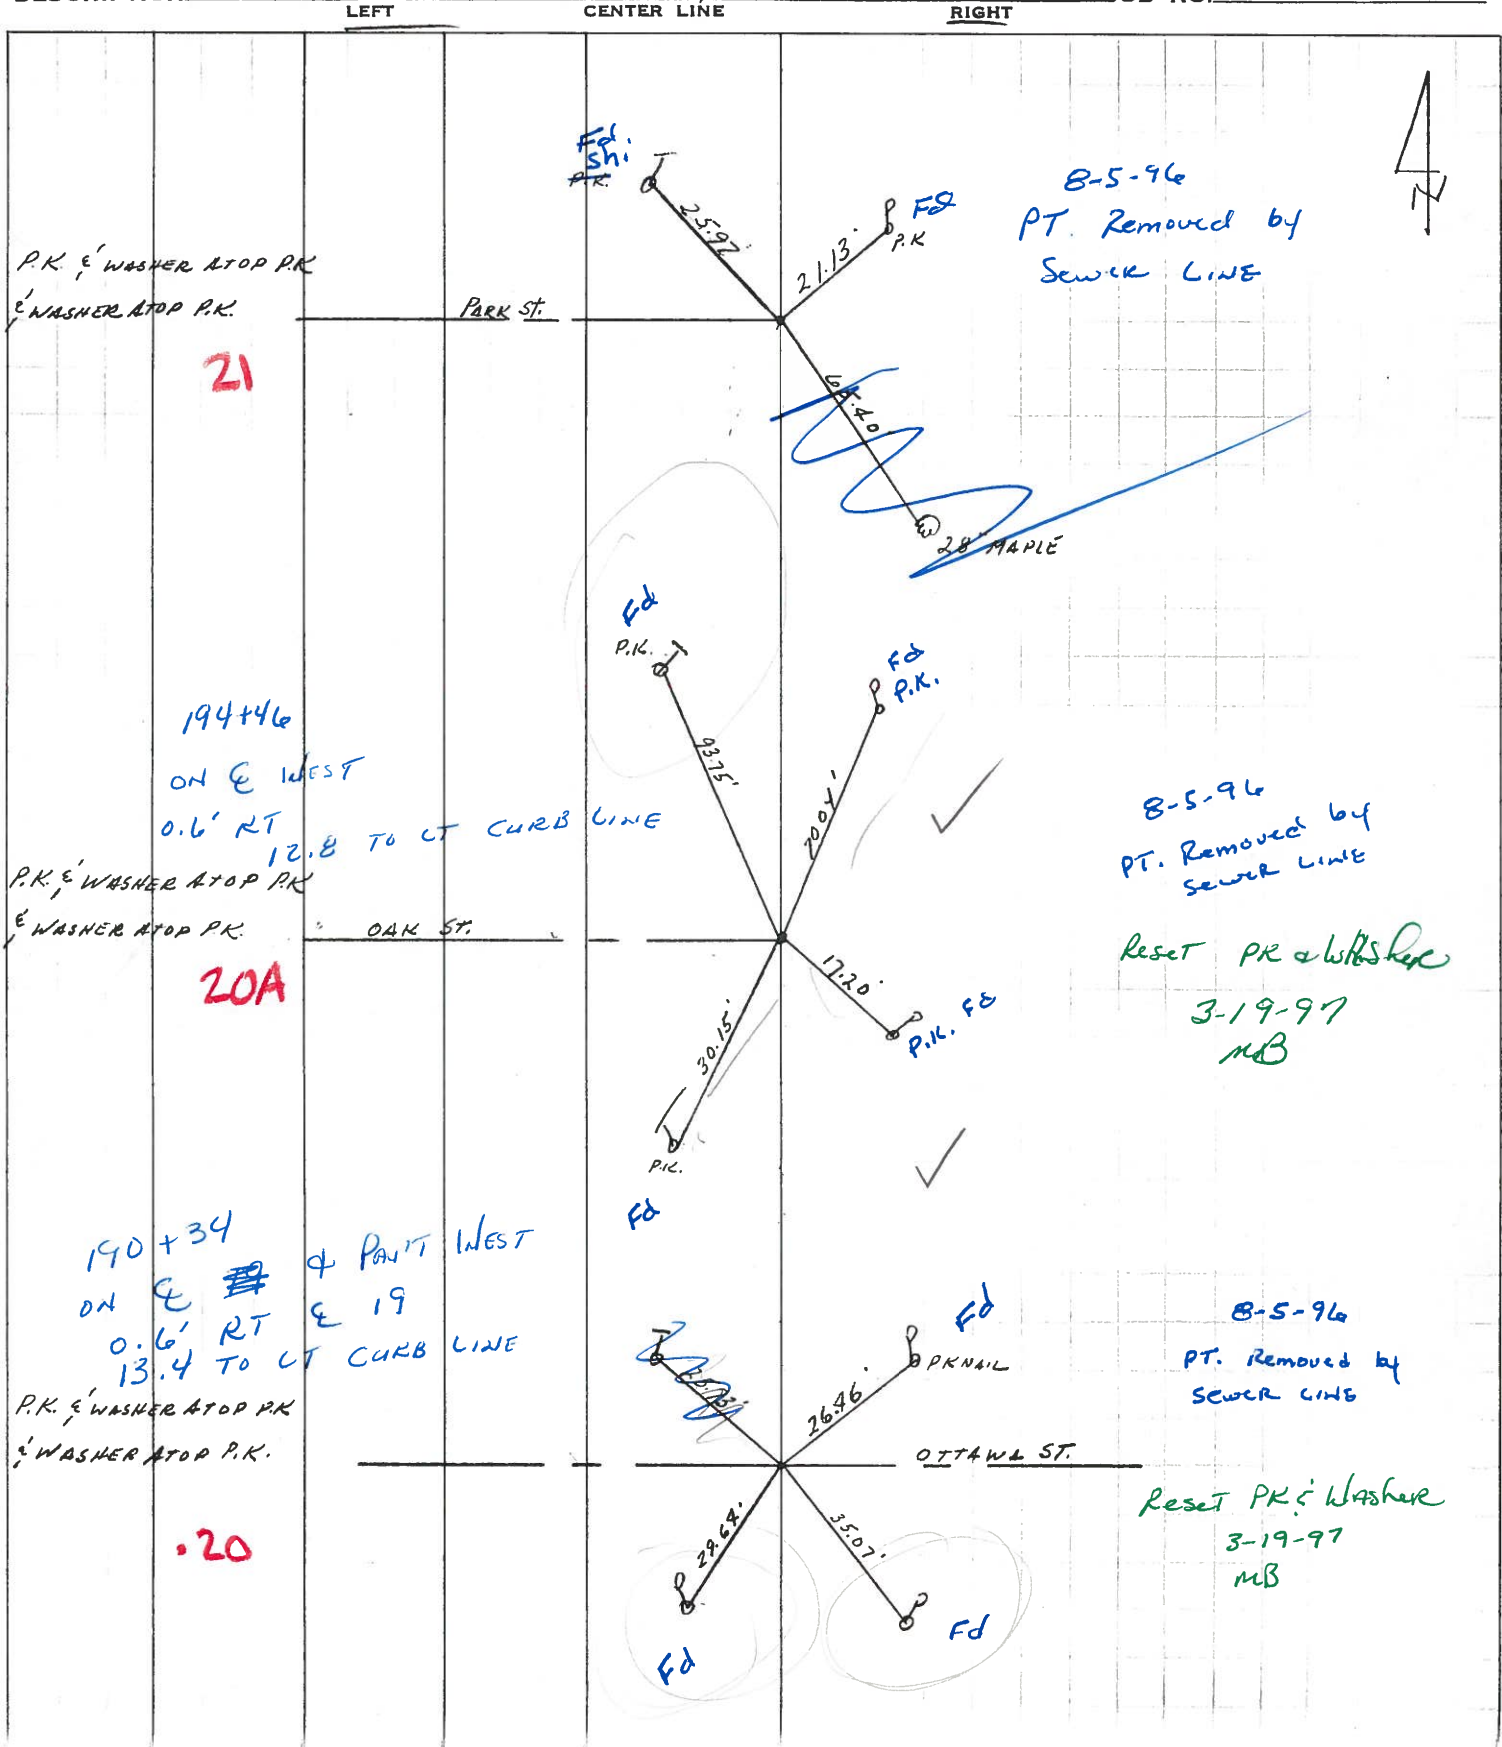 LEFT
CENTER LINE
RIGHT
Fd
Shi
P.K.
25.92'
21.13'
Fd
P.K
8-5-96
PT. Removed by
Sewer Line
N
P.K. & WASHER ATOP P.K
& WASHER ATOP P.K.
PARK ST.
21
28" MAPLE
Fd
P.K.
Fd
P.K.
93.75'
20.04'
194+46
ON ℄ WEST
0.6' RT
12.8 TO LT CURB LINE
8-5-96
PT. Removed by
Sewer Line
P.K. & WASHER ATOP P.K
& WASHER ATOP P.K.
OAK ST.
20A
17.20'
P.K. Fd
30.15'
P.K.
Fd
Reset PK & Washer
3-19-97
MB
190+34
ON ℄ & PAV'T WEST
0.6' RT ℄ 19
13.4 TO LT CURB LINE
Fd
PK NAIL
26.46'
8-5-96
PT. Removed by
Sewer Line
P.K. & WASHER ATOP P.K
& WASHER ATOP P.K.
OTTAWA ST.
.20
29.64'
35.07'
Fd
Fd
Reset PK & Washer
3-19-97
MB